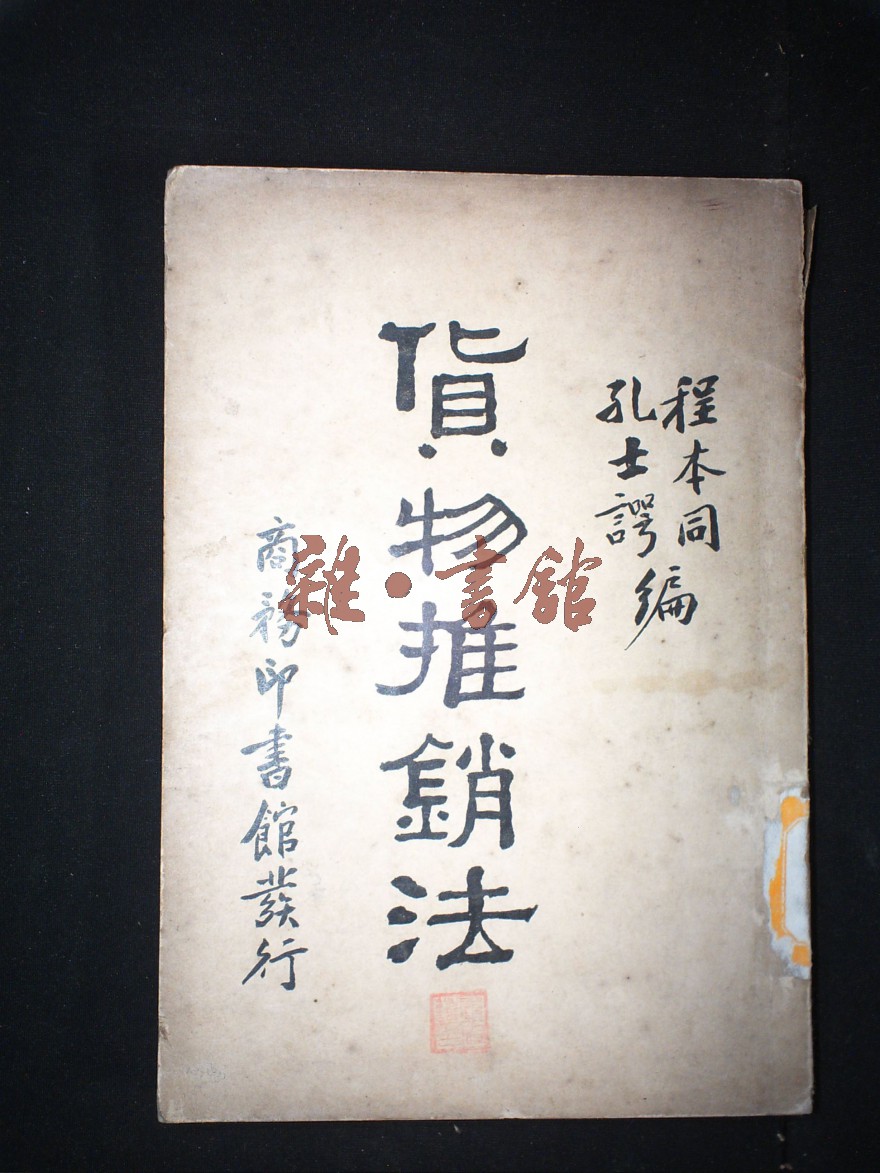 程本同
孔士諤
編
貨物推銷法
商務印書館發行
雜·書館